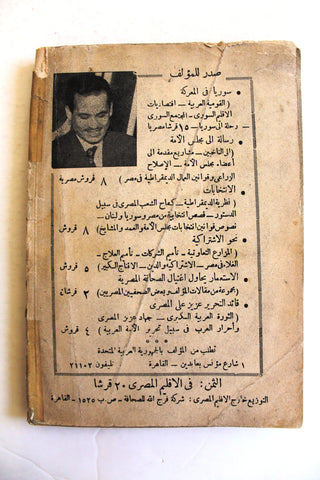 صدر للمؤلف
• سوريا فى المعركة
(القومية العربية — اقتصاديات
الاقليم السورى — المجتمع السورى
— رحلة الى سوريا — ١٥ قرشا مصريا
• رسالة الى مجلس الأمة
(الى الناخبين — مشاريع مقدمة الى
أعضاء مجلس الأمة — الإصلاح
الزراعى وقوانين العمال الديمقراطية فى مصر) ٨ قروش مصرية
• الانتخابات
(نظرية الديمقراطية — كفاح الشعب المصرى فى سبيل
الدستور — قصص انتخابية من مصر وسوريا ولبنان —
نصوص قوانين انتخابات مجلس الأمة والعمد والمشايخ) ٨ قروش
• نحو الاشتراكية
(المزارع التعاونية — تأميم الشركات — تأميم العلاج —
الغلاء فى مصر — الاشتراكية والدين — الانتاج الكبير) ٥ قروش
• الاستعمار يحاول اغتيال الصحافة المصرية
(مجموعة من مقالات المؤلف وبعض الصحفيين المصريين) ٢ قرشان
• قائد التحرير عزيز على المصرى
(الثورة العربية الكبرى — جهاد عزيز المصرى
وأحرار العرب فى سبيل تحرير الأمة العربية) ٤ قروش
تطلب من المؤلف بالجمهورية العربية المتحدة
١ شارع مؤنس بعابدين — القاهرة تليفون ٢١١٠٢
الثمن: فى الاقليم المصرى ٢٠ قرشا
التوزيع خارج الاقليم المصرى: شركة فرج الله للصحافة — ص ب ١٥٢٥ — القاهرة